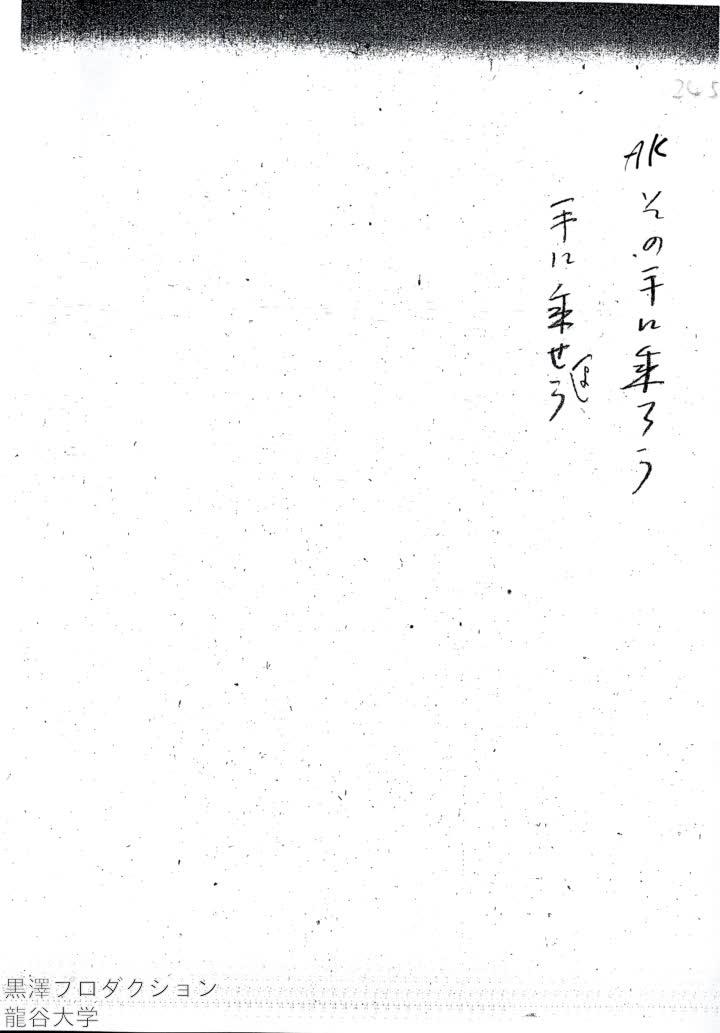 245
AKその手に乗ろう
手に乗せろ
黒澤プロダクション
龍谷大学